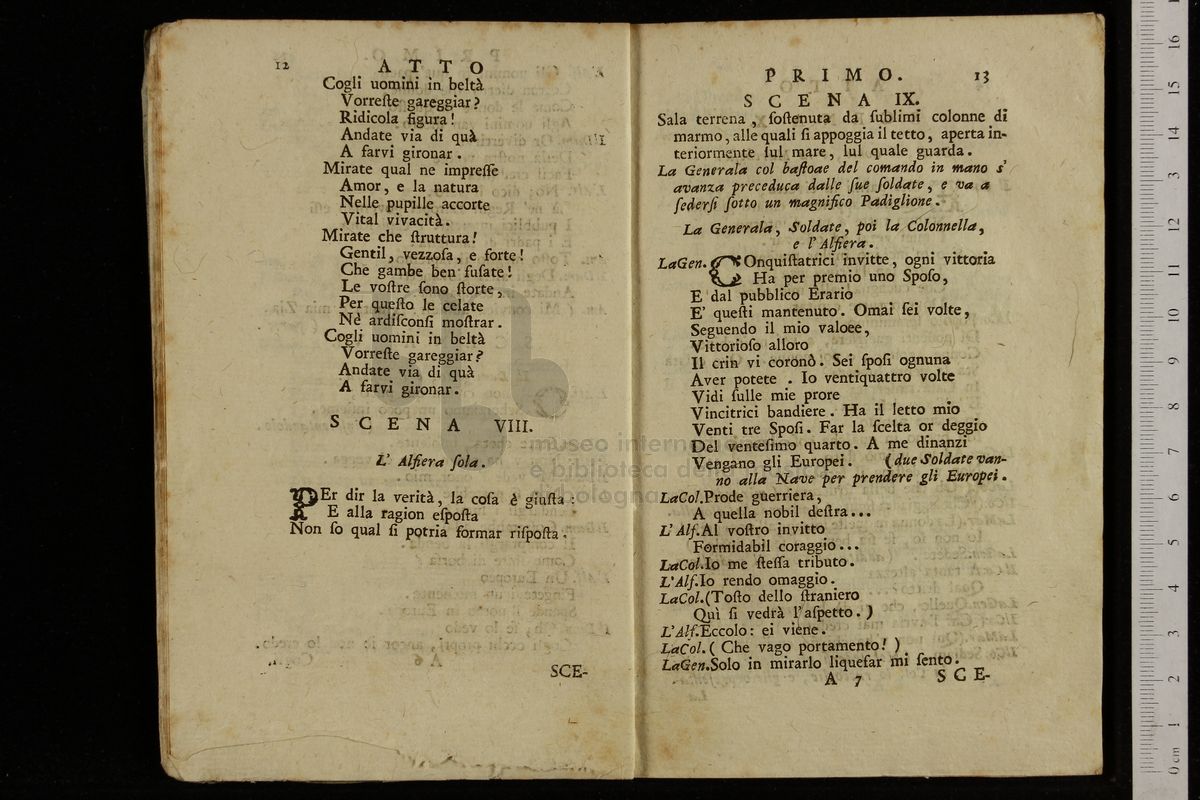 12 ATTO
Cogli uomini in beltà
Vorreſte gareggiar?
Ridicola figura!
Andate via di quà
A farvi gironar.
Mirate qual ne impreſſe
Amor, e la natura
Nelle pupille accorte
Vital vivacità.
Mirate che ſtruttura!
Gentil, vezzoſa, e forte!
Che gambe ben fuſate!
Le voſtre ſono ſtorte,
Per queſto le celate
Nè ardiſconſi moſtrar.
Cogli uomini in beltà
Vorreſte gareggiar?
Andate via di quà
A farvi gironar.
SCENA VIII.
L' Alfiera ſola.
PEr dir la verità, la coſa è giuſta:
E alla ragion eſpoſta
Non ſo qual ſi potria formar riſpoſta.
SCE-
PRIMO. 13
SCENA IX.
Sala terrena, ſoſtenuta da ſublimi colonne di
marmo, alle quali ſi appoggia il tetto, aperta in-
teriormente ſul mare, ſul quale guarda.
La Generala col baſtoae del comando in mano s'
avanza preceduca dalle ſue ſoldate, e va a
ſederſi ſotto un magnifico Padiglione.
La Generala, Soldate, poi la Colonnella,
e l' Alfiera.
LaGen. COnquiſtatrici invitte, ogni vittoria
Ha per premio uno Spoſo,
E dal pubblico Erario
E' queſti mantenuto. Omai ſei volte,
Seguendo il mio valoee,
Vittorioſo alloro
Il crin vi coronò. Sei ſpoſi ognuna
Aver potete. Io ventiquattro volte
Vidi ſulle mie prore
Vincitrici bandiere. Ha il letto mio
Venti tre Spoſi. Far la ſcelta or deggio
Del venteſimo quarto. A me dinanzi
Vengano gli Europei. (due Soldate van-
no alla Nave per prendere gli Europei.
LaCol.Prode guerriera,
A quella nobil deſtra...
L' Alf.Al voſtro invitto
Formidabil coraggio...
LaCol.Io me ſteſſa tributo.
L'Alf.Io rendo omaggio.
LaCol.(Toſto dello ſtraniero
Quì ſi vedrà l'aſpetto.)
L'Alf.Eccolo: ei viene.
LaCol.( Che vago portamento! )
LaGen.Solo in mirarlo liquefar mi ſento.
A 7 SCE-
museo internazionale
e biblioteca della musica
bologna